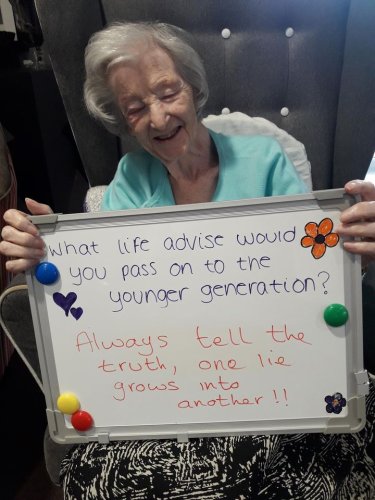 What life advise would
you pass on to the
younger generation?
Always tell the
truth, one lie
grows into
another!!